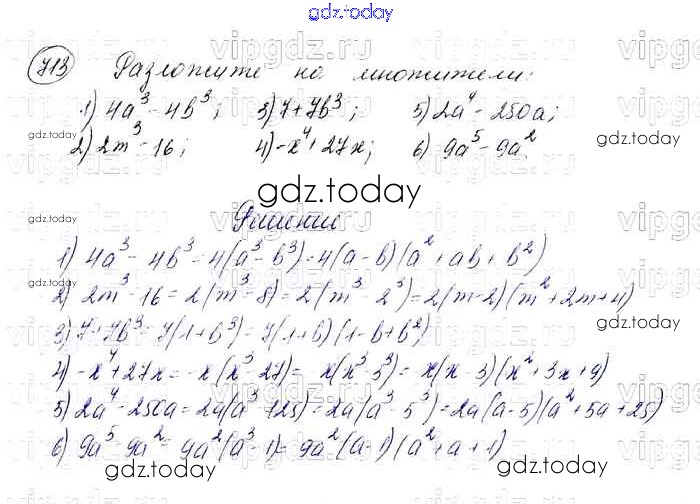 gdz.today
713 Разложите на множители:
1) 4a³ - 4b³; 3) 7+7b³; 5) 2a⁴ - 250a;
2) 2m³ - 16; 4) -x⁴ + 27x; 6) 9a⁵ - 9a²
gdz.today
Решение
1) 4a³ - 4b³ = 4(a³ - b³) = 4(a-b)(a² + ab + b²)
2) 2m³ - 16 = 2(m³ - 8) = 2(m³ - 2³) = 2(m-2)(m² + 2m + 4)
3) 7+7b³ = 7(1+b³) = 7(1+b)(1-b+b²)
4) -x⁴ + 27x = -x(x³ - 27) = x(x³ 3³) = x(x-3)(x² + 3x + 9)
5) 2a⁴ - 250a = 2a(a³ - 125) = 2a(a³ - 5³) = 2a(a-5)(a² + 5a + 25)
6) 9a⁵ - 9a² = 9a²(a³ - 1) = 9a²(a-1)(a² + a + 1)
gdz.today